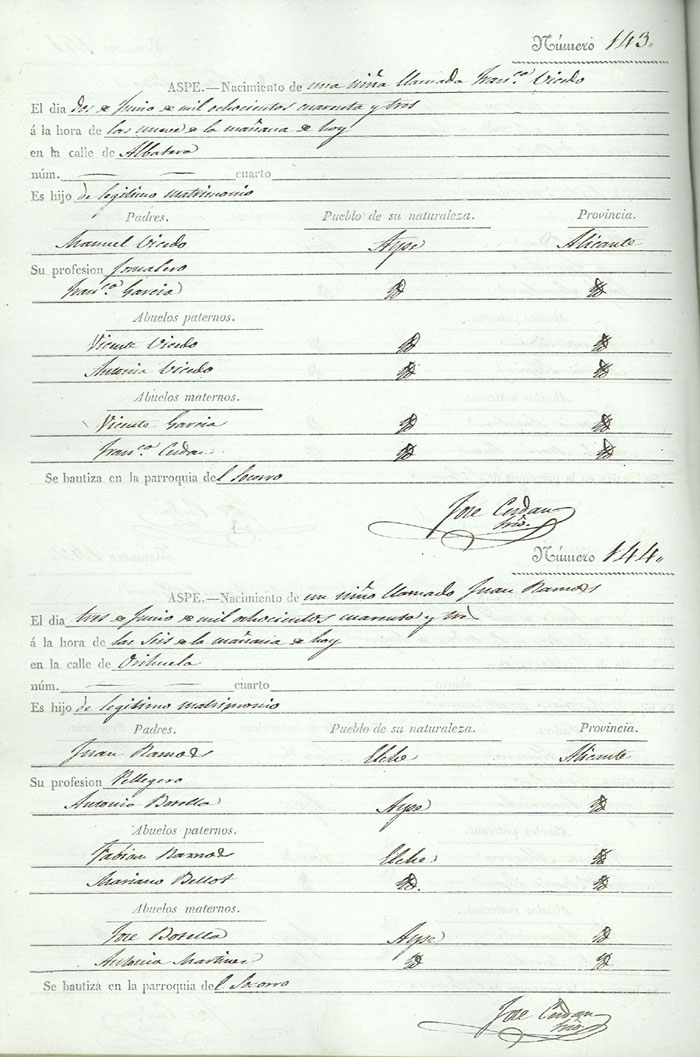 Número 143.
ASPE.—Nacimiento de una niña llamada Fran.ca Vicedo
El dia dos de Junio de mil ochocientos cuarenta y tres
á la hora de las nueve de la mañana de hoy
en la calle de Albatera
núm. — — cuarto
Es hijo de legitimo matrimonio
Padres. Pueblo de su naturaleza. Provincia.
Manuel Vicedo Aspe Alicante
Su profesion Jornalero
Fran.ca Garcia Yd Yd
Abuelos paternos.
Vicente Vicedo Yd Yd
Antonia Vicedo Yd Yd
Abuelos maternos.
Vicente Garcia Yd Yd
Fran.ca Cerdan Yd Yd
Se bautiza en la parroquia del Socorro
Jose Cerdan
Srio.
Número 144.
ASPE.—Nacimiento de un niño llamado Juan Ramos
El dia tres de Junio de mil ochocientos cuarenta y tres
á la hora de las Seis de la mañana de hoy
en la calle de Orihuela
núm. — — cuarto
Es hijo de legitimo matrimonio
Padres. Pueblo de su naturaleza. Provincia.
Juan Ramos Elche Alicante
Su profesion Pellegero
Antonia Botella Aspe Yd
Abuelos paternos.
Fabian Ramos Elche Yd
Mariana Bellot Yd. Yd
Abuelos maternos.
Jose Botella Aspe Yd
Antonia Martinez Yd Yd
Se bautiza en la parroquia del Socorro
Jose Cerdan
Srio.